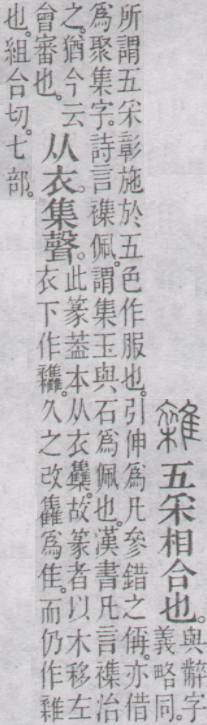 雜 五采相合也。與辬字
義略同。
所謂五采彰施於五色作服也。引伸爲凡參錯之偁。亦借
爲聚集字。詩言襍佩。謂集玉與石爲佩也。漢書凡言襍治
之。猶今云
會審也。
从衣。集聲。
此篆蓋本从衣雧。故篆者以木移左
衣下作雜。久之改雥爲隹。而仍作雜
也。組合切。七部。